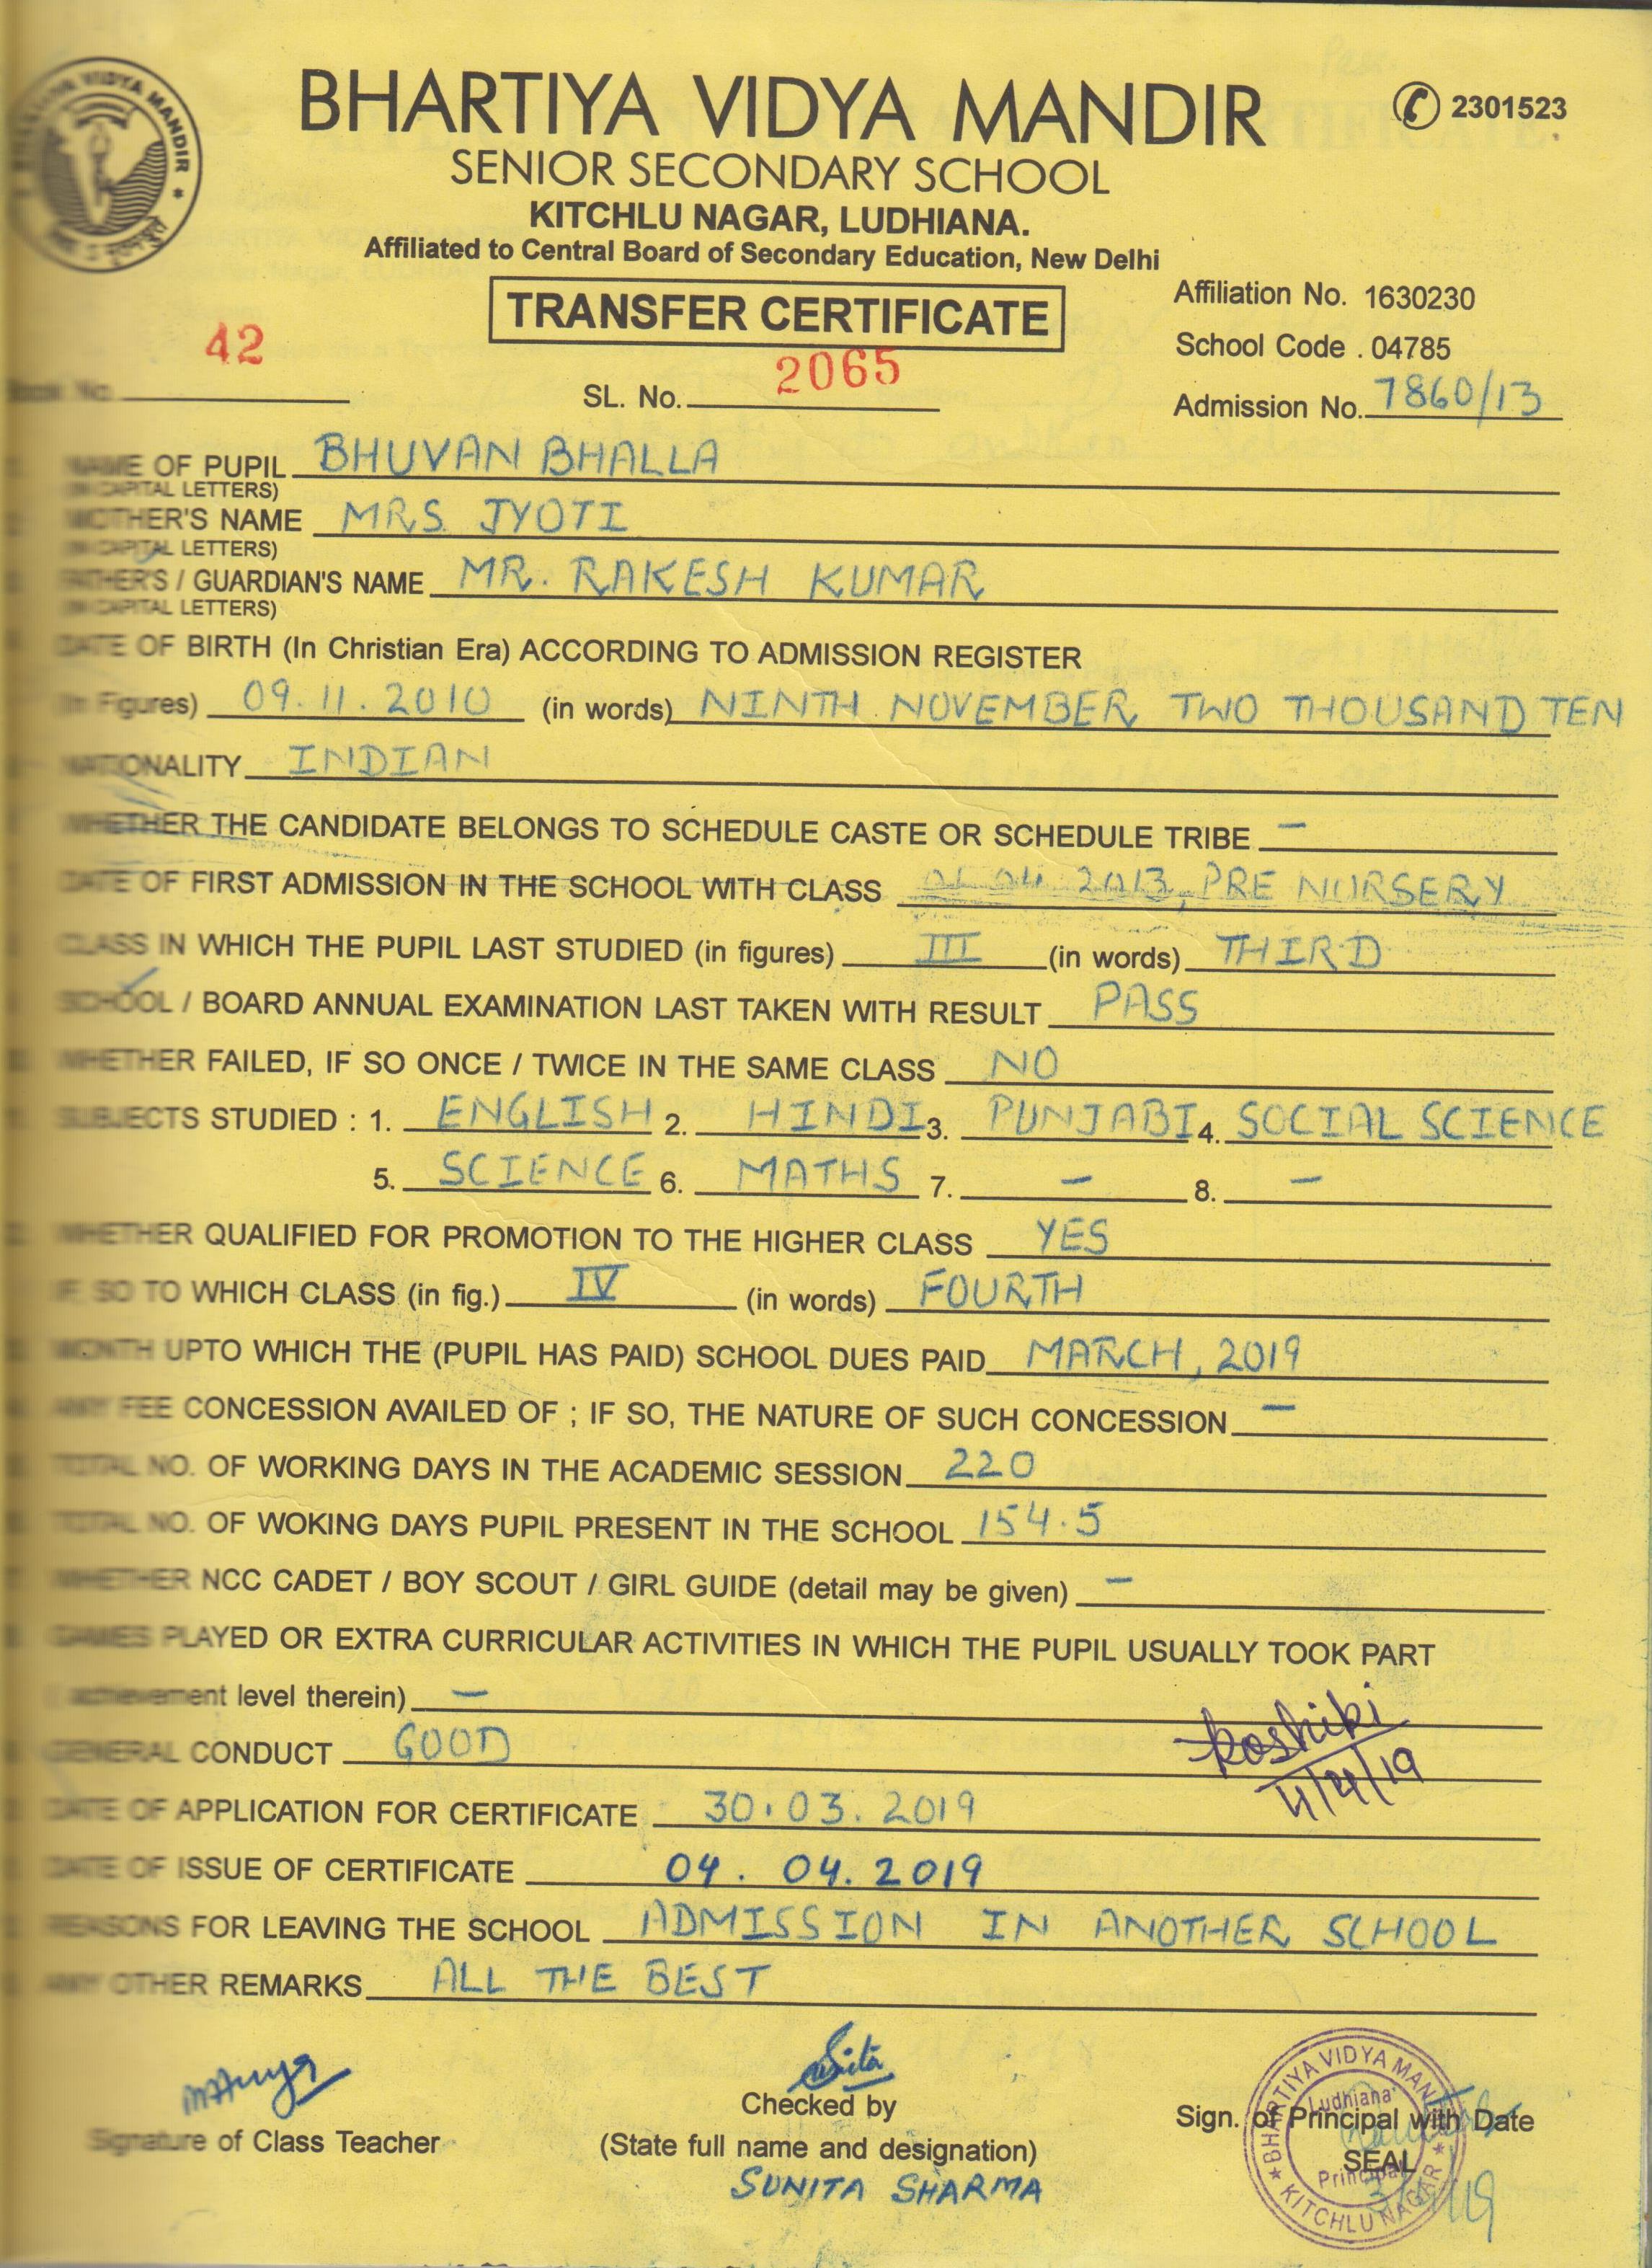 BHARTIYA VIDYA MANDIR
2301523
SENIOR SECONDARY SCHOOL
KITCHLU NAGAR, LUDHIANA.
Affiliated to Central Board of Secondary Education, New Delhi
TRANSFER CERTIFICATE
Affiliation No. 1630230
School Code . 04785
Book No. 42
SL. No. 2065
Admission No. 7860/13
NAME OF PUPIL BHUVAN BHALLA
(IN CAPITAL LETTERS)
MOTHER'S NAME MRS. JYOTI
(IN CAPITAL LETTERS)
FATHER'S / GUARDIAN'S NAME MR. RAKESH KUMAR
(IN CAPITAL LETTERS)
DATE OF BIRTH (In Christian Era) ACCORDING TO ADMISSION REGISTER
(In Figures) 09.11.2010 (in words) NINTH NOVEMBER TWO THOUSAND TEN
NATIONALITY INDIAN
WHETHER THE CANDIDATE BELONGS TO SCHEDULE CASTE OR SCHEDULE TRIBE –
DATE OF FIRST ADMISSION IN THE SCHOOL WITH CLASS 01.04.2013, PRE NURSERY
CLASS IN WHICH THE PUPIL LAST STUDIED (in figures) III (in words) THIRD
SCHOOL / BOARD ANNUAL EXAMINATION LAST TAKEN WITH RESULT PASS
WHETHER FAILED, IF SO ONCE / TWICE IN THE SAME CLASS NO
SUBJECTS STUDIED : 1. ENGLISH 2. HINDI 3. PUNJABI 4. SOCIAL SCIENCE
5. SCIENCE 6. MATHS 7. – 8. –
WHETHER QUALIFIED FOR PROMOTION TO THE HIGHER CLASS YES
IF, SO TO WHICH CLASS (in fig.) IV (in words) FOURTH
MONTH UPTO WHICH THE (PUPIL HAS PAID) SCHOOL DUES PAID MARCH, 2019
ANY FEE CONCESSION AVAILED OF ; IF SO, THE NATURE OF SUCH CONCESSION –
TOTAL NO. OF WORKING DAYS IN THE ACADEMIC SESSION 220
TOTAL NO. OF WOKING DAYS PUPIL PRESENT IN THE SCHOOL 154.5
WHETHER NCC CADET / BOY SCOUT / GIRL GUIDE (detail may be given) –
GAMES PLAYED OR EXTRA CURRICULAR ACTIVITIES IN WHICH THE PUPIL USUALLY TOOK PART
( achievement level therein) –
Koshiki
GENERAL CONDUCT GOOD
DATE OF APPLICATION FOR CERTIFICATE 30.03.2019
DATE OF ISSUE OF CERTIFICATE 04.04.2019
REASONS FOR LEAVING THE SCHOOL ADMISSION IN ANOTHER SCHOOL
ANY OTHER REMARKS ALL THE BEST
Signature of Class Teacher
Checked by
(State full name and designation)
SUNITA SHARMA
Sign. of Principal with Date
SEAL
BHARTIYA VIDYA MANDIR
Ludhiana
Principal
KITCHLU NAGAR